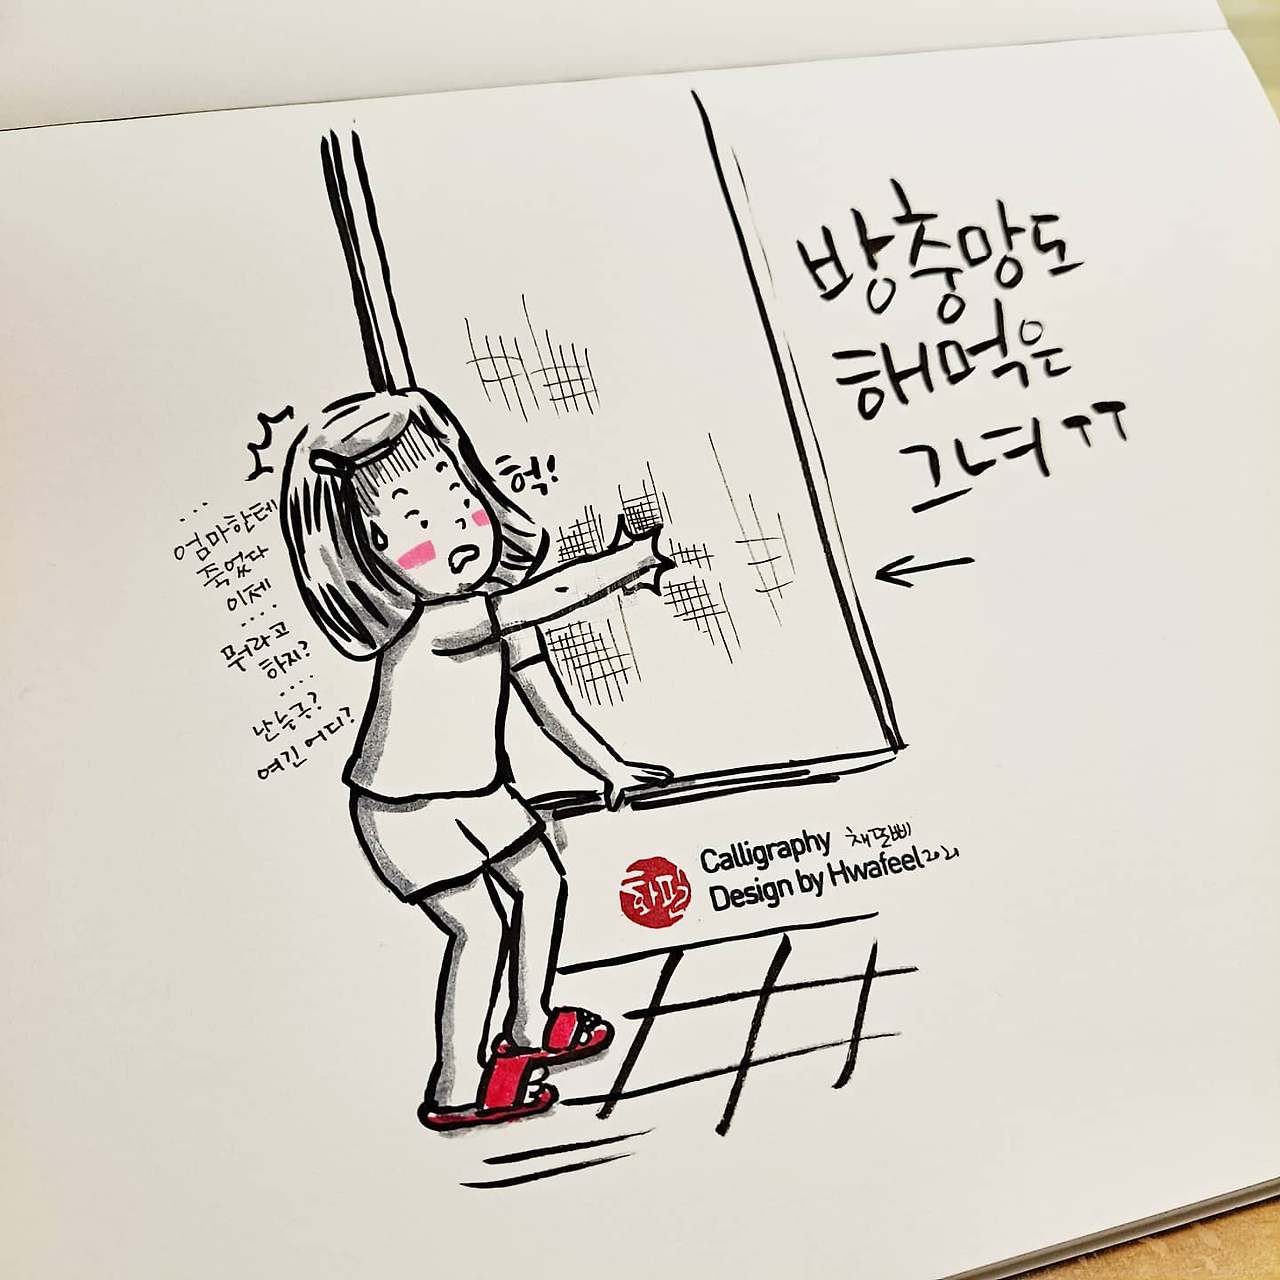 방충망도
해먹은
그녀ㅠㅠ
헉!
...
엄마한테
죽었다
이제
....
뭐라고
하지?
....
난 누구?
여긴 어디?
화필
Calligraphy 채딸삐
Design by Hwafeel 2021